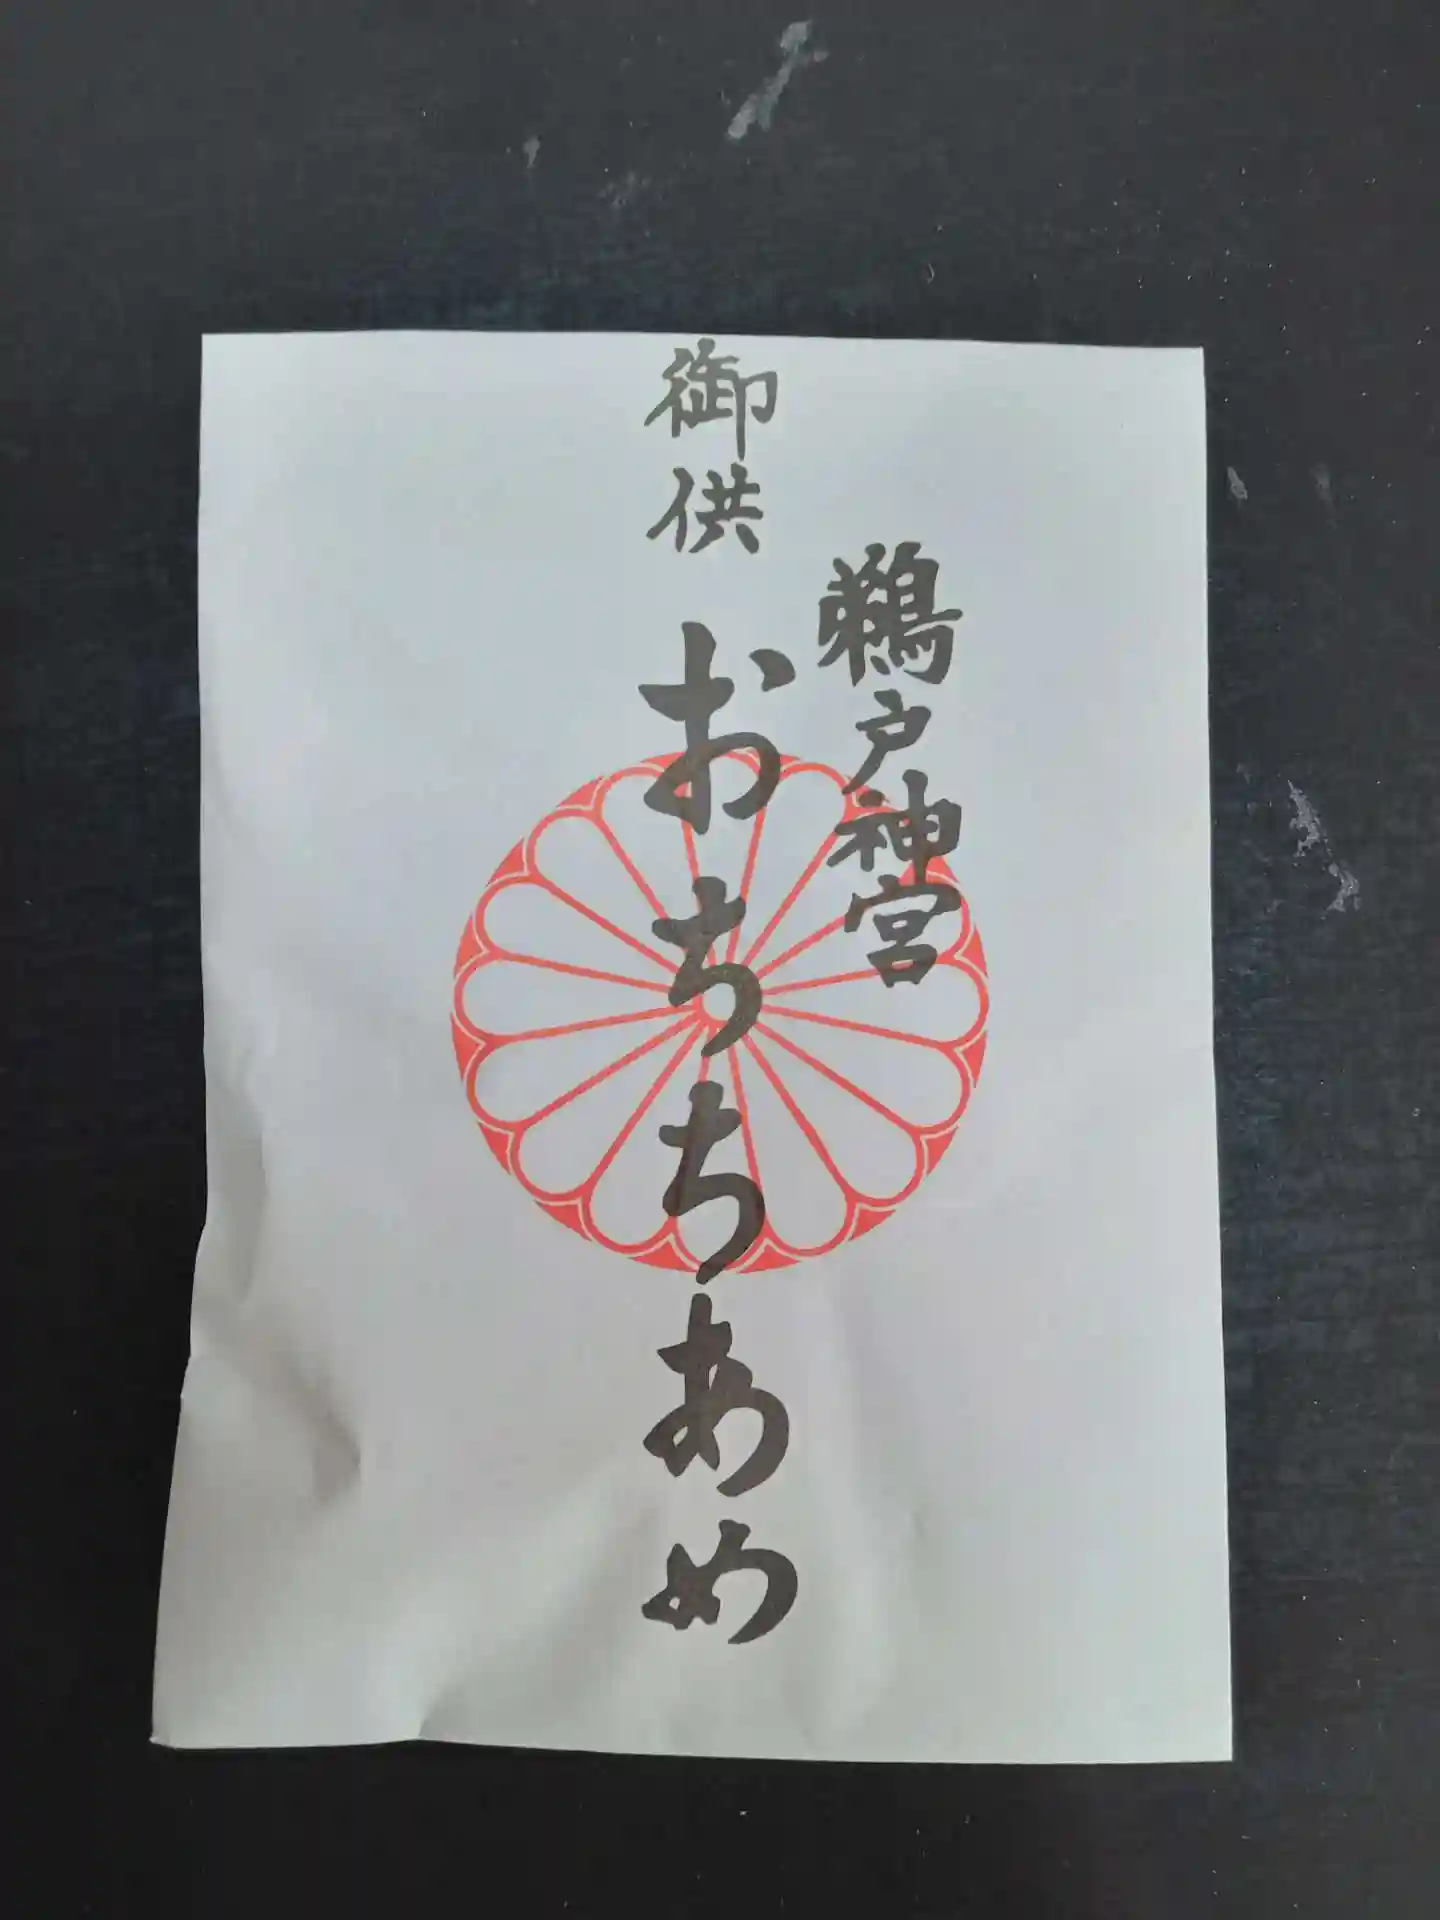 鵜戸神宮
御供 おちちあめ